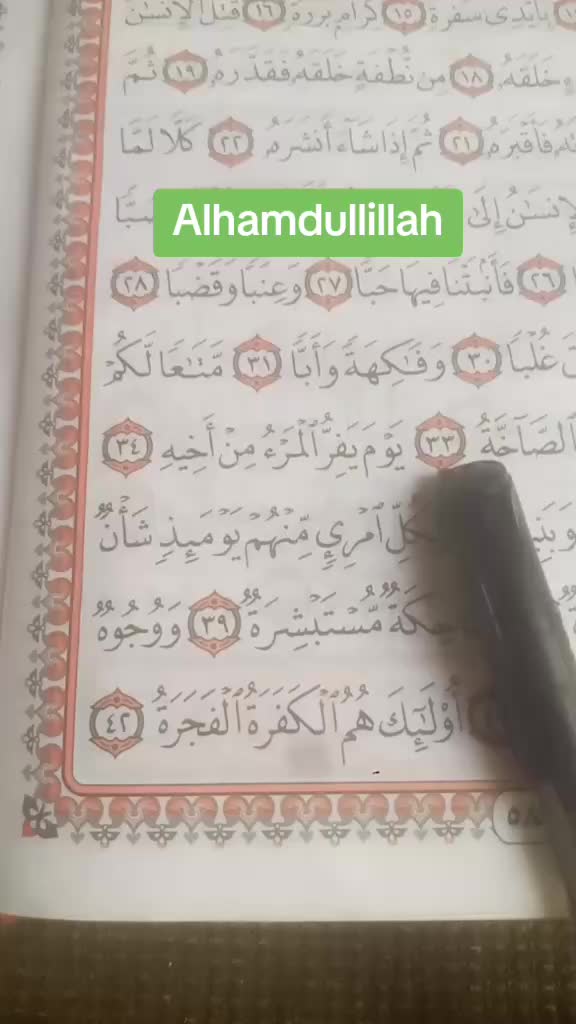 بِأَيْدِى سَفَرَةٍ ١٥ كِرَامٍ بَرَرَةٍ ١٦ قُتِلَ ٱلْإِنسَٰنُ
خَلَقَهُۥ ١٨ مِن نُّطْفَةٍ خَلَقَهُۥ فَقَدَّرَهُۥ ١٩ ثُمَّ
فَأَقْبَرَهُۥ ٢١ ثُمَّ إِذَا شَآءَ أَنشَرَهُۥ ٢٢ كَلَّا لَمَّا
إِلَىٰ
Alhamdullillah
٢٦ فَأَنۢبَتْنَا فِيهَا حَبًّا ٢٧ وَعِنَبًا وَقَضْبًا ٢٨
غُلْبًا ٣٠ وَفَٰكِهَةً وَأَبًّا ٣١ مَّتَٰعًا لَّكُمْ
ٱلصَّآخَّةُ ٣٣ يَوْمَ يَفِرُّ ٱلْمَرْءُ مِنْ أَخِيهِ ٣٤
ٱمْرِئٍ مِّنْهُمْ يَوْمَئِذٍ شَأْنٌ
مُّسْتَبْشِرَةٌ ٣٩ وَوُجُوهٌ
أُو۟لَٰٓئِكَ هُمُ ٱلْكَفَرَةُ ٱلْفَجَرَةُ ٤٢